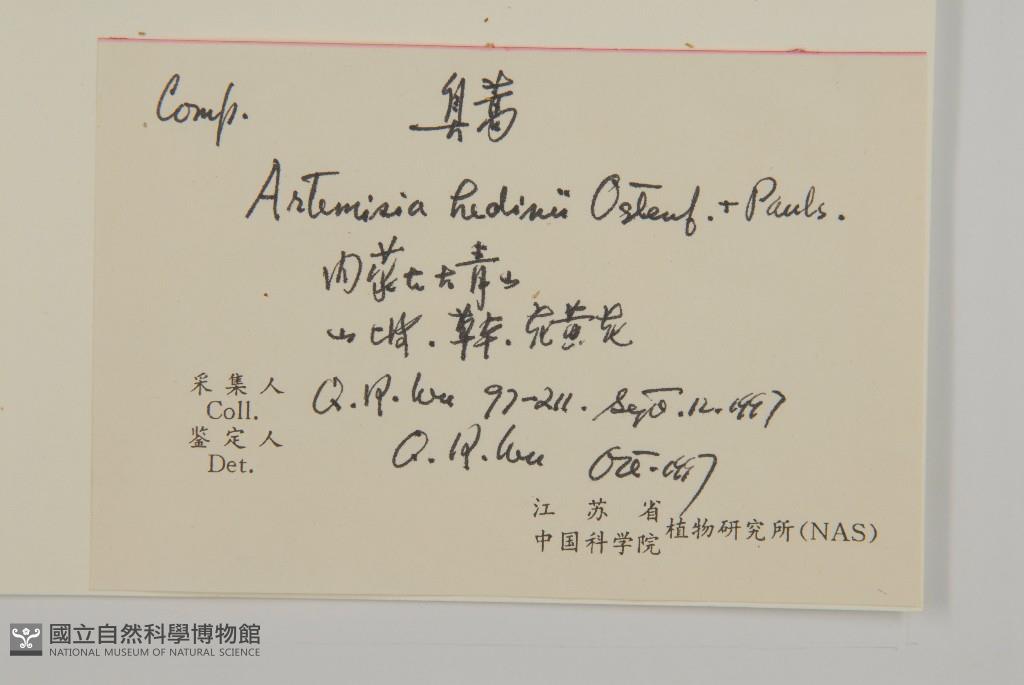 Comp. 臭蒿
Artemisia hedinii Ostenf. + Pauls.
内蒙古大青山
山坡. 草本. 花黄色
采集人 Coll. Q. R. Wu 97-211. Sept. 12. 1997
鉴定人 Det. Q. R. Wu Oct. 1997
江苏省
中国科学院 植物研究所(NAS)
國立自然科學博物館
NATIONAL MUSEUM OF NATURAL SCIENCE